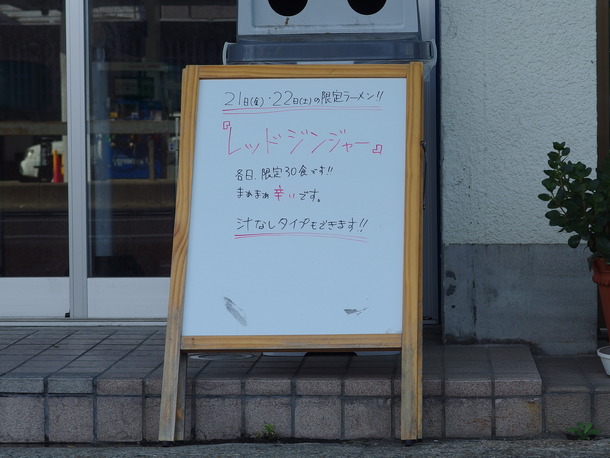 21日(金)・22日(土)の限定ラーメン!!
『レッドジンジャー』
各日、限定30食です!!
まぁまぁ辛いです。
汁なしタイプもできます!!